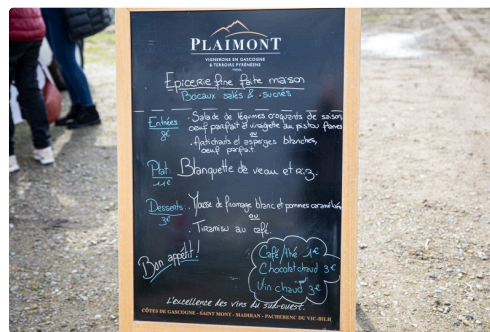 PLAIMONT
VIGNERONS EN GASCOGNE
& TERROIRS PYRÉNÉENS
Epicerie fine faite maison
Bocaux salés & sucrés
Entrées : Salade de légumes croquants de saison
8€ oeuf parfait et vinaigrette au pistou
ou
. Artichauts et asperges blanches,
oeuf parfait.
Plat : Blanquette de veau et riz.
11€
Desserts : Mousse de fromage blanc et pommes caramélisées
3€ ou
. Tiramisu au café.
Bon appétit!
Café/thé 1€
Chocolat chaud 3€
Vin chaud 3€
L'excellence des vins du sud-ouest.
CÔTES DE GASCOGNE - SAINT MONT - MADIRAN - PACHERENC DU VIC-BILH